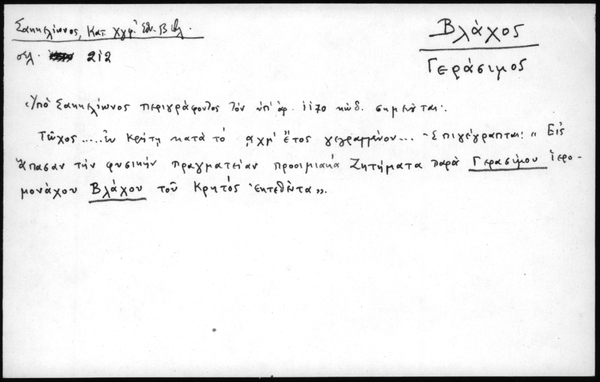 Σακκελίωνος, Κατ. Χγφ. Ἐθν. Βιβλ.
σελ. 212
Βλάχος
Γεράσιμος
Ὑπὸ Σακκελίωνος περιγράφοντος τὸν ὑπ' ἀρ. 1170 κώδ. σημειοῦται:
Τεῦχος.... ἐν Κρήτῃ κατὰ τὸ ͵αχμ' ἔτος γεγραμμένον... Ἐπιγέγραπται: "Εἰς
ἅπασαν τὴν φυσικὴν πραγματείαν προοιμιακὰ Ζητήματα παρὰ Γερασίμου ἱερο-
μονάχου Βλάχου τοῦ Κρητὸς ἐκτεθέντα".